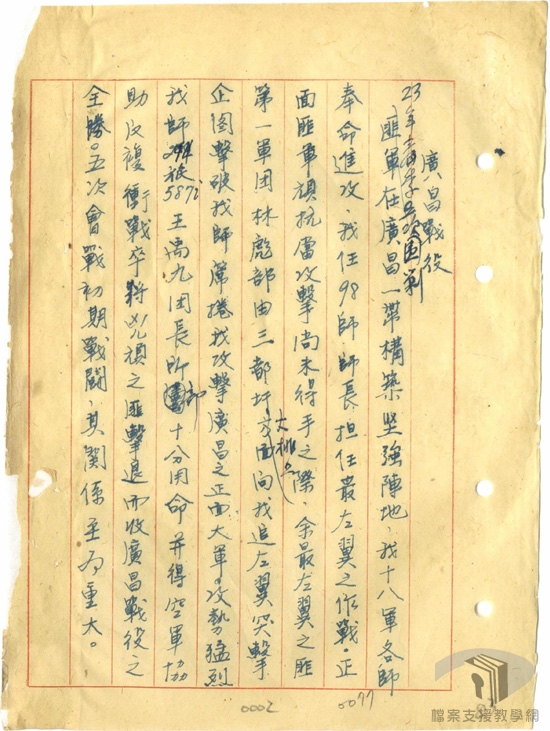 廣昌戰役
23年春季五次圍剿
匪軍在廣昌一帶構築坚強陣地，我十八軍各師
奉命進攻、我任98師師長、担任最左翼之作戰。正
面匪軍頑抗當攻擊尚未得手之際、余最左翼之匪
第一軍团林彪部由三都圩大排方面向我追左翼突擊
企图擊破我師席捲我攻擊廣昌之正面大軍。攻勢猛烈
我師294旅587i王禹九团長所部十分用命并得空軍協
助反複衝戰卒將兇頑之匪擊退而收廣昌戰役之
全勝。五次會戰初期戰鬪、其関係至為重大。
0002
0077
檔案支援教學網